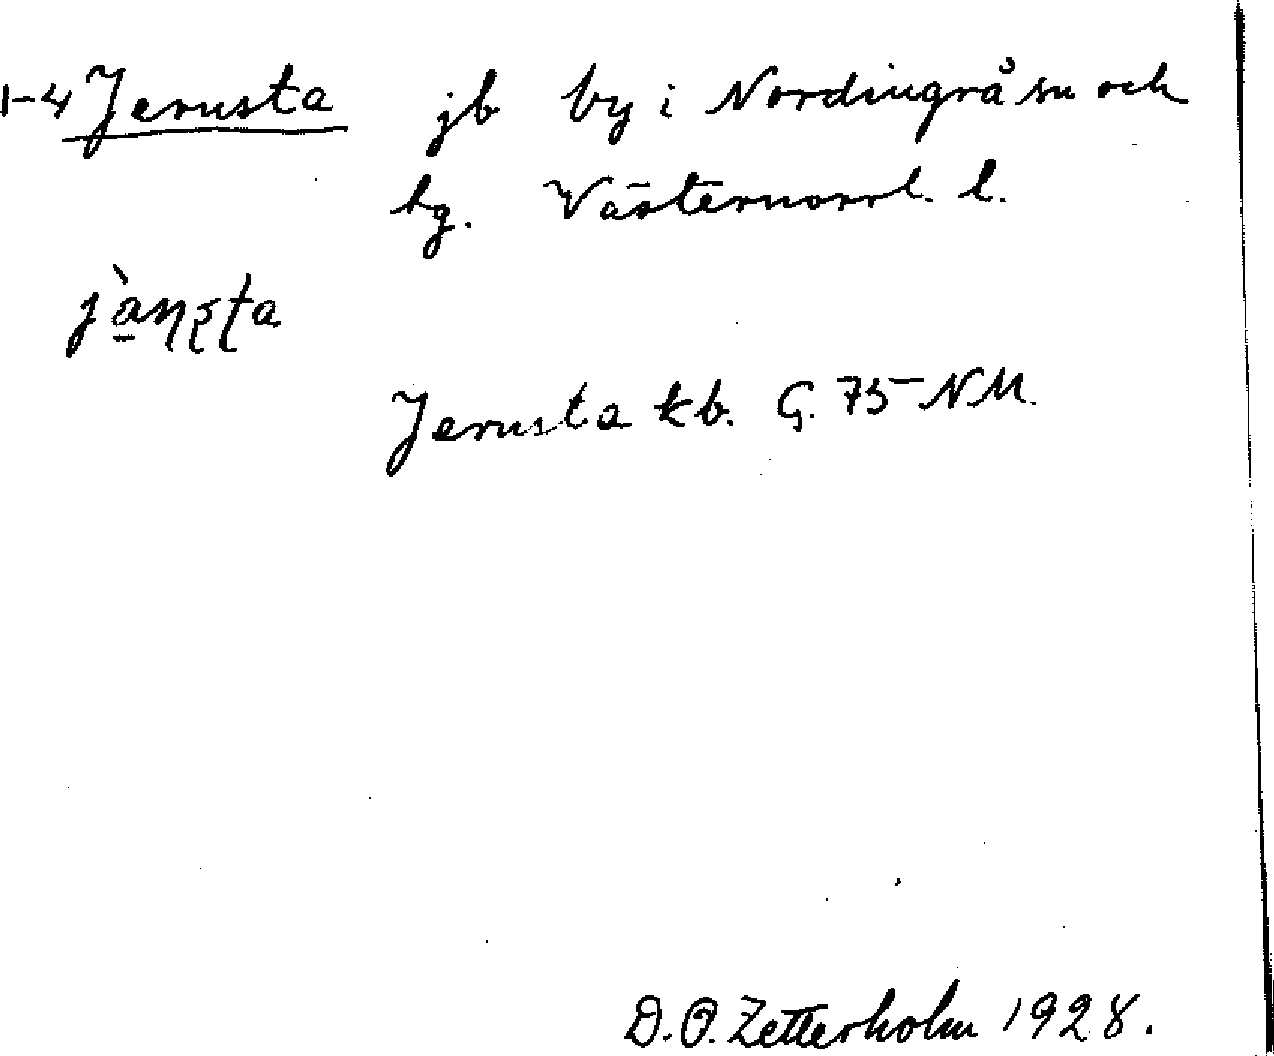 1-4 Jerusta jb by i Nordingrå sn och
hg. Västernorrl. l.
Jerusta kb. G. 75 NM.
D.O. Zetterholm 1928.